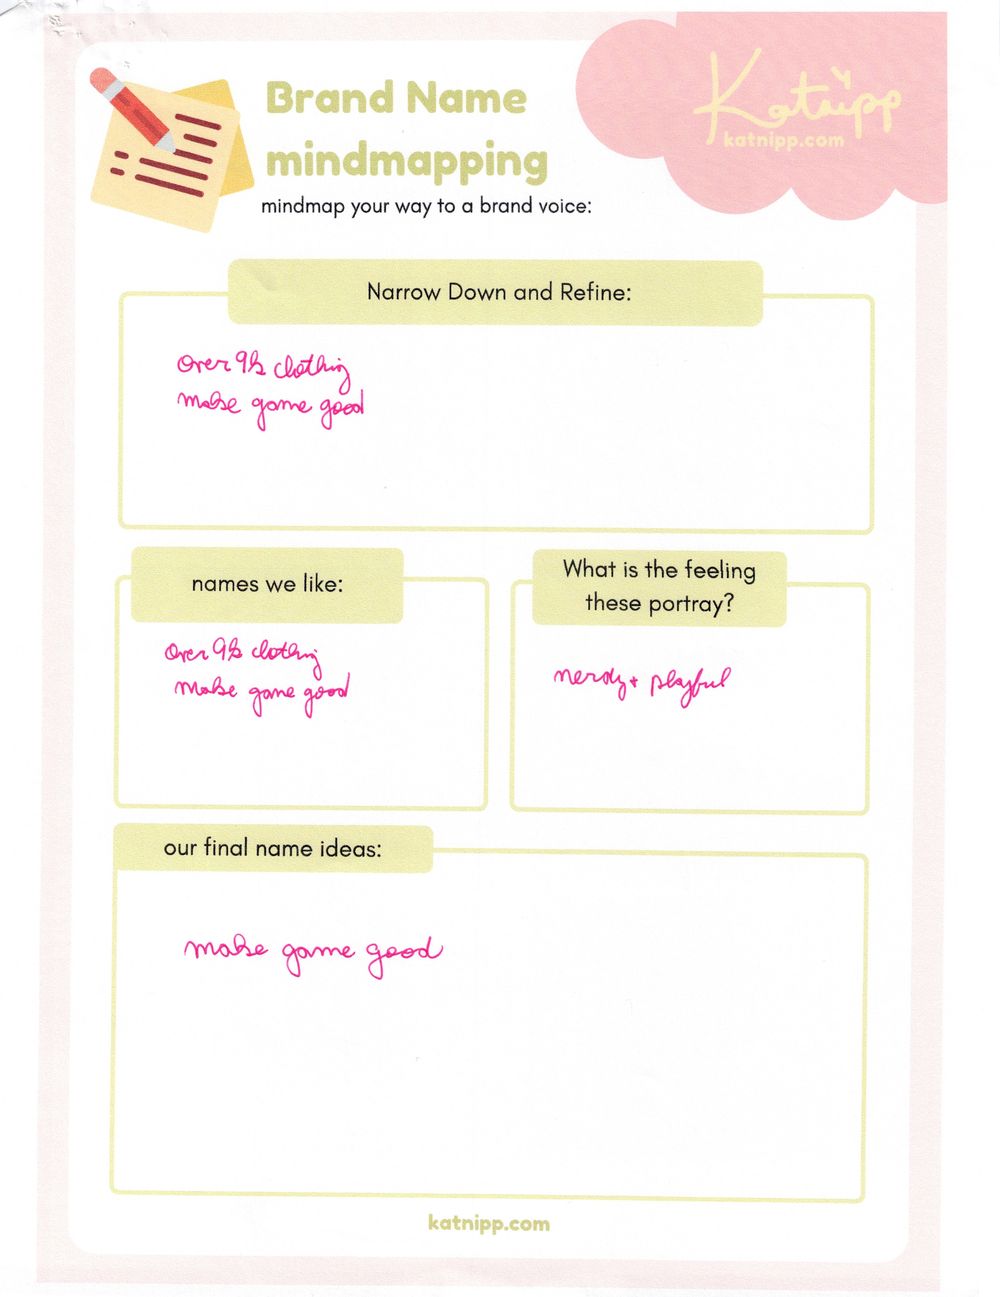 Brand Name
mindmapping
mindmap your way to a brand voice:
Katnipp
katnipp.com
Narrow Down and Refine:
over 9k clothing
make game good
names we like:
over 9k clothing
make game good
What is the feeling
these portray?
nerdy + playful
our final name ideas:
make game good
katnipp.com